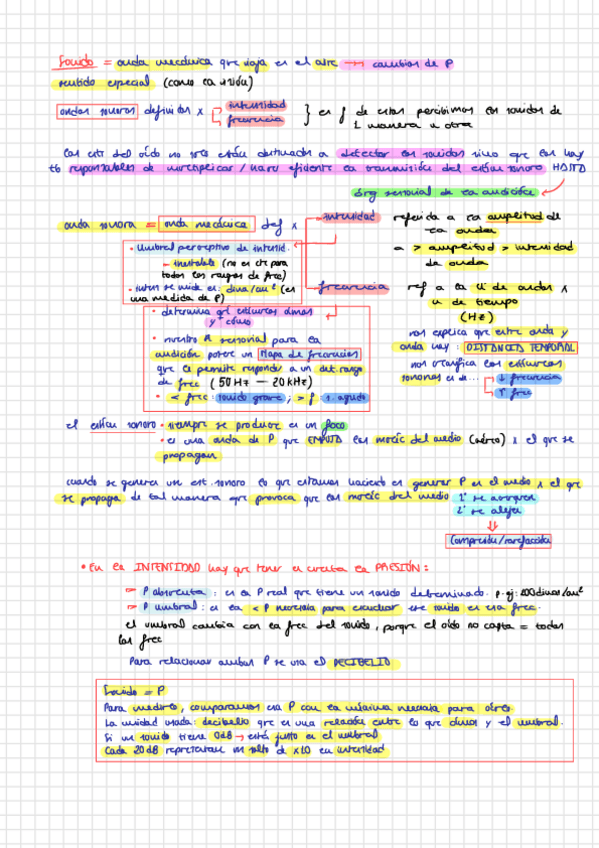 Sonido = onda mecánica que viaja en el aire → cambios de P
sentido especial (como la visión)
ondas sonoras definidas x → intensidad
→ frecuencia
} en f de estas percibimos los sonidos de
1 manera u otra
las estr del oído no solo están destinadas a detectar los sonidos sino que los hay
responsables de multiplicar / hacer eficiente la transmisión del estím sonoro HASTA
órg sensorial de la audición
onda sonora = onda mecánica def x
intensidad
referida a la amplitud de
la onda
a > amplitud > intensidad
de onda
• Umbral perceptivo de intensid.
→ inestable (no es cte para
todos los rangos de frec)
• intens se mide en: dina/cm² (es
una medida de P)
frecuencia
ref a la u de ondas x
u de tiempo
(Hz)
• determina qué estímulos oímos
y cómo
• nuestro R sensorial para la
audición posee un Mapa de frecuencias
que le permite responder a un det. rango
de frec (50 Hz — 20 kHz)
• < frec: sonido grave; > f: s. agudo
nos explica que entre onda y
onda hay: DISTANCIA TEMPORAL
nos clasifica los estímulos
sonoros en de... → ↓ frecuencia
→ ↑ frec
el estím sonoro • siempre se produce en un foco
• es una onda de P que EMPUJA las moléc del medio (aéreo) x el que se
propagan
cuando se genera un est. sonoro lo que estamos haciendo es generar P en el medio x el que
se propaga de tal manera que provoca que las moléc del medio 1º se acerquen
2º se alejen
⇓
Compresión/rarefacción
• En la INTENSIDAD hay que tener en cuenta la PRESIÓN:
→ P absoluta: es la P real que tiene un sonido determinado. p.ej: 200 dinas/cm²
→ P umbral: es la < P necesaria para escuchar ese sonido en esa frec.
el umbral cambia con la frec del sonido, porque el oído no capta = todas
las frec
Para relacionar ambas P se usa el DECIBELIO
Sonido = P
Para medirlo, comparamos esa P con la mínima necesaria para oírlo
La unidad usada: decibelio que es una relación entre lo que oímos y el umbral.
Si un sonido tiene 0dB → está justo en el umbral
Cada 20 dB representan un salto de x10 en intensidad